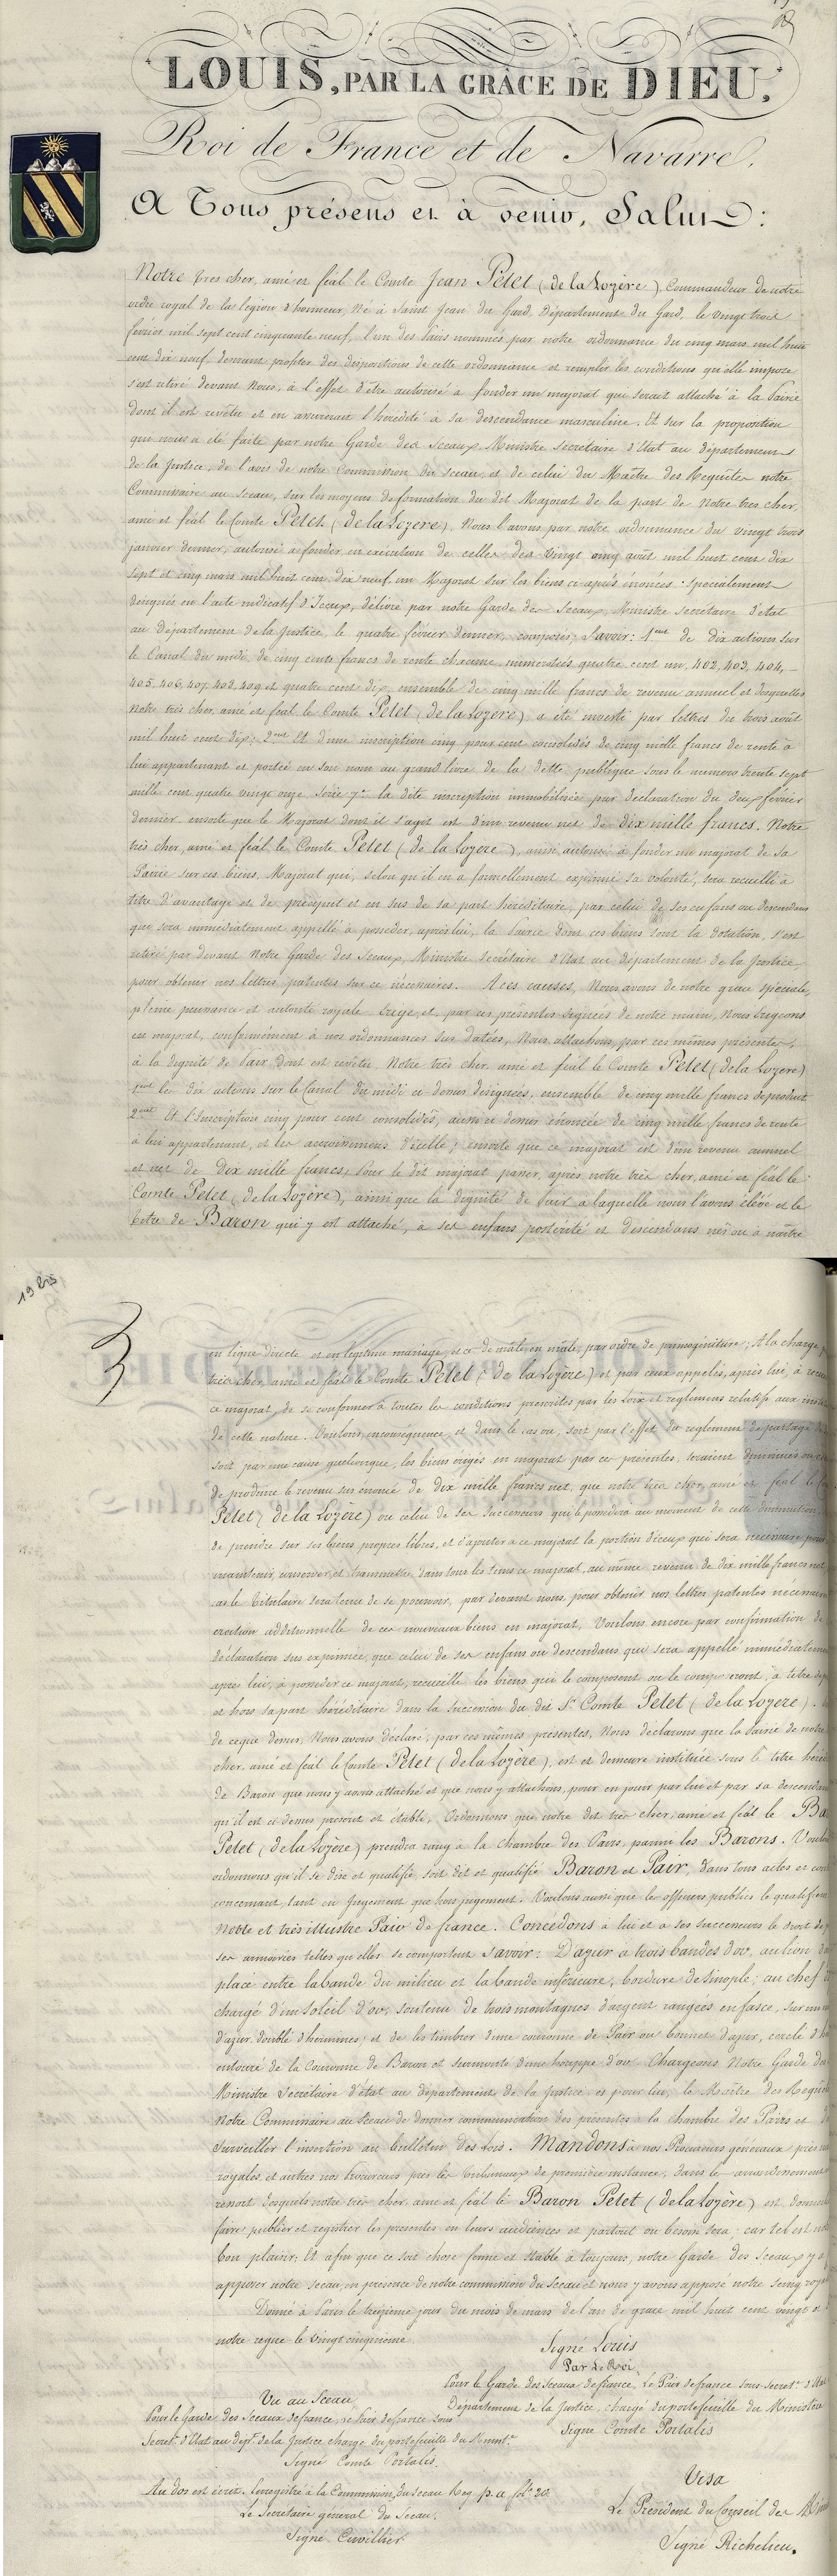 LOUIS, PAR LA GRÂCE DE DIEU,
Roi de France et de Navarre,
A Tous présens et à venir, Salut :
Notre très cher, amé et féal le Comte Jean Pelet (de la Lozère), Commandeur de notre
ordre royal de la légion d'honneur, né à Saint Jean du Gard, Département du Gard, le vingt trois
février mil sept cent cinquante neuf, l'un des Pairs nommés par notre ordonnance du cinq mars mil huit
cent dix neuf, désirant profiter des dispositions de cette ordonnance et remplir les conditions qu'elle impose
s'est retiré devant Nous, à l'effet d'être autorisé à fonder un majorat qui serait attaché à la Pairie
dont il est revêtu et en assurerait l'hérédité à sa descendance masculine. Et sur la proposition
qui nous a été faite par notre Garde des Sceaux, Ministre Secrétaire d'Etat au département
de la Justice, de l'avis de notre Commission du sceau, et de celui du Maître des Requêtes notre
Commissaire au Sceau, sur les moyens de formation du dit Majorat de la part de Notre très cher,
amé et féal le Comte Pelet (de la Lozère), Nous l'avons par notre ordonnance du vingt trois
janvier dernier, autorisé à fonder, en exécution de celles des vingt cinq août mil huit cent dix
sept et cinq mars mil huit cent dix neuf un Majorat sur les biens ci après énoncés : spécialement
désignés en l'acte indicatif d'Iceux, délivré par notre Garde des Sceaux, Ministre Secrétaire d'état
au Département de la Justice, le quatre février dernier, composés, Savoir : 1ent de dix actions sur
le Canal du midi, de cinq cents francs de rente chacune, numérotées quatre cent un, 402, 403, 404,
405, 406, 407, 408, 409 et quatre cent dix, ensemble de cinq mille francs de revenu annuel et desquelles
Notre très cher, amé et féal le Comte Pelet (de la Lozère), a été investi par lettres du trois août
mil huit cent dix; 2ent Et d'une inscription cinq pour cent consolidés de cinq mille francs de rente à
lui appartenant et portée en son nom au grand livre de la dette publique sous le numéro trente sept
mille cent quatre vingt onze, série 7e la dite inscription immobilisée par déclaration du deux février
dernier. ensorte que le Majorat dont il s'agit est d'un revenu net de dix mille francs. Notre
très cher, amé et féal le Comte Pelet (de la Lozère), ainsi autorisé à fonder un majorat de sa
Pairie sur ces biens, Majorat qui, selon qu'il en a formellement exprimé sa volonté, sera recueilli à
titre d'avantage et de préciput et en sus de sa part héréditaire, par celui de ses enfans ou descendans
qui sera immédiatement appellé à posséder, après lui, la Pairie dont ces biens sont la dotation, s'est
retiré par devant Notre Garde des Sceaux, Ministre Secrétaire d'Etat au département de la Justice,
pour obtenir nos lettres patentes sur ce nécessaires. A ces causes, Nous avons de notre grace spéciale,
pleine puissance et autorité royale Erigé, et, par ces présentes signées de notre main, Nous Erigeons
en majorat, conformément à nos ordonnances sus datées, Nous attachons, par ces mêmes présentes,
à la dignité de Pair dont est revêtu, Notre très cher, amé et féal le Comte Pelet (de la Lozère)
1ent les dix actions sur le Canal du midi ci dessus désignées, ensemble de cinq mille francs de produit
2ent Et l'Inscription cinq pour cent consolidés, aussi ci dessus énoncée de cinq mille francs de rente
à lui appartenant, et les accroissemens d'icelle; ensorte que ce majorat est d'un revenu annuel
et net de dix mille francs, Pour le dit majorat passer, après notre très cher, amé et féal le
Comte Pelet (de la Lozère), ainsi que la dignité de Pair à laquelle nous l'avons élévé et le
titre de Baron qui y est attaché, à ses enfans postérité et descendans nés ou à naître
19 bis
en ligne directe et en légitime mariage, et ce de mâle en mâle, par ordre de primogéniture; A la charge
très cher, amé et féal le Comte Pelet (de la Lozère) et par ceux appelés, après lui, à
ce majorat, de se conformer à toutes les conditions prescrites par les Loix et réglemens relatifs aux
de cette nature. Voulons, en conséquence, et dans le cas où, soit par l'effet du réglement de partage
soit par une cause quelconque, les biens érigés en majorat par ces présentes, seraient diminués ou
de produire le revenu sus énoncé de dix mille francs net, que notre très cher, amé et féal le
Pelet (de la Lozère) ou celui de ses successeurs qui le possédera au moment de cette diminution
de prendre sur ses biens propres libres, et d'ajouter à ce majorat la portion d'iceux qui sera nécessaire pour
maintenir, conserver et transmettre dans tous les tems ce majorat, au même revenu de dix mille francs net
cas le Titulaire sera tenu de se pourvoir, par devant nous, pour obtenir nos lettres patentes nécessaires
érection additionnelle de ces nouveaux biens en majorat, Voulons encore par confirmation de
déclaration sus exprimée, que celui de ses enfans ou descendans qui sera appellé immédiatement
après lui, à posséder ce majorat, recueille les biens qui le composent ou le composeront, à titre de
et hors sa part héréditaire dans la succession du dit Sr Comte Pelet (de la Lozère).
de ce que dessus, Nous avons déclaré, par ces mêmes présentes, Nous déclarons que la Pairie de notre
cher, amé et féal le Comte Pelet (de la Lozère), est et demeure instituée sous le titre
de Baron que nous y avons attaché et que nous y attachons, pour en jouir par lui et par sa
qu'il est ci dessus prescrit et établi, Ordonnons que notre dit très cher, amé et féal le
Pelet (de la Lozère) prendra rang à la chambre des Pairs, parmi les Barons.
ordonnons qu'il se dise et qualifie, soit dit et qualifié Baron et Pair, dans tous actes et
concernant, tant en Jugement que hors jugement. Voulons aussi que les officiers publics le qualifient
Noble et très illustre Pair de france. Concédons à lui et à ses successeurs le droit de
ses armoiries telles qu'elles se comportent Savoir : D'azur à trois bandes d'or, au lion
placé entre la bande du milieu et la bande inférieure, bordure de sinople; au chef
chargé d'un soleil d'or, soutenu de trois montagnes d'argent rangées en fasce, sur un
d'azur doublé d'hermines; et de les timbrer d'une couronne de Pair ou bonnet d'azur, cerclé
entouré de la Couronne de Baron et surmonté d'une houppe d'or. Chargeons Notre Garde des
Ministre Secrétaire d'état au département de la Justice, et pour lui, le Maître des
Notre Commissaire au Sceau de donner communication des présentes à la chambre des Pairs et
surveiller l'insertion au bulletin des lois. Mandons à nos Procureurs généraux près nos
royales, et autres nos Procureurs près les tribunaux de première instance, dans les arrondissemens
ressort desquels notre très cher, amé et féal le Baron Pelet (de la Lozère) est domicilié
faire publier et registrer les présentes en leurs audiences et partout où besoin sera; car tel est
bon plaisir; Et afin que ce soit chose ferme et stable à toujours, notre Garde des Sceaux y a
apposer notre sceau, en présence de notre commission du Sceau et nous y avons apposé notre seing royal
Donné à Paris le treizième jour du mois de mars de l'an de grace mil huit cent vingt et
notre règne le vingt cinquième
Signé Louis
Par le Roi,
Pour le Garde des Sceaux de france, Le Pair de france sous Secrétre d'Etat
Département de la Justice, chargé du portefeuille du Ministère
Signé Comte Portalis
Vu au Sceau,
Pour le Garde des Sceaux de france, le Pair de france sous
Secret. d'Etat au dépt. de la Justice chargé du portefeuille du Ministre
Signé Comte Portalis.
Au dos est écrit. Enregistré à la Commission du sceau Reg. p. a folo 20.
Le Secrétaire général du Sceau,
Signé Cuvillier
Visa
Le Président du Conseil des
Signé Richelieu.